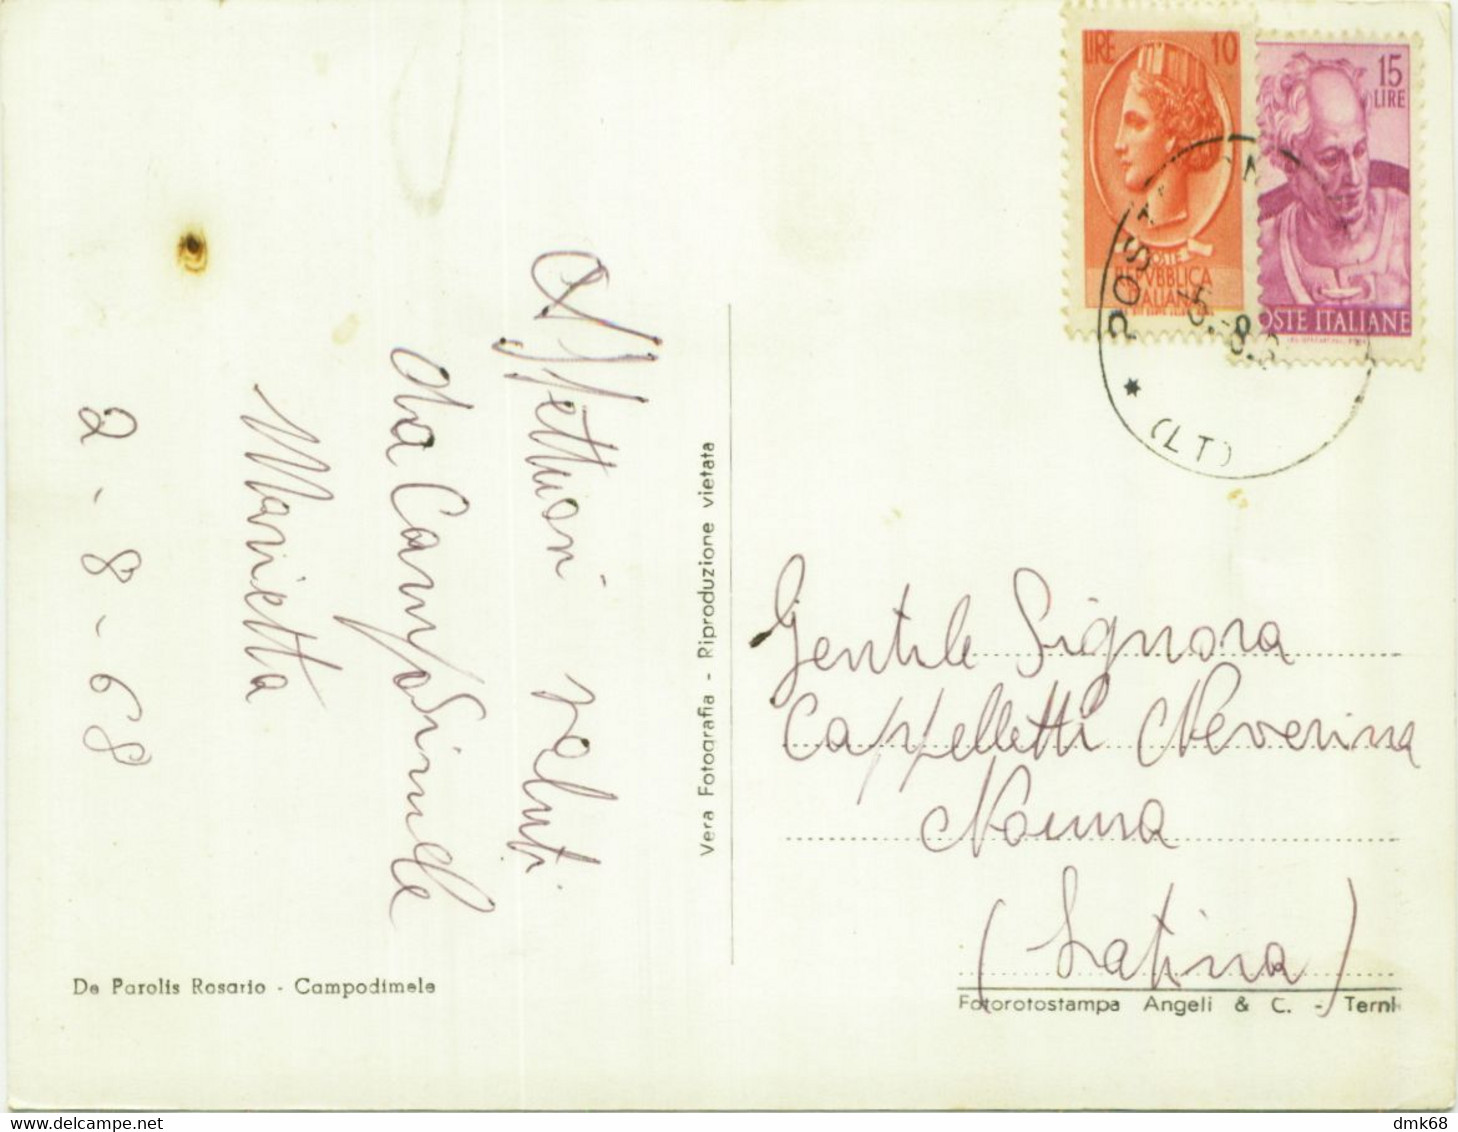 Affettuosi saluti
da Campodimele
Marietta
2-8-68
De Parolis Rosario - Campodimele
Vera Fotografia - Riproduzione vietata
LIRE 10
POSTE
REPVBBLICA
ITALIANA
15
LIRE
POSTE ITALIANE
POSTA
-5.-8.
(LT)
Gentile Signora
Cappelletti Neverina
Norma
(Latina)
Fotorotostampa Angeli & C. - Terni
dmk68